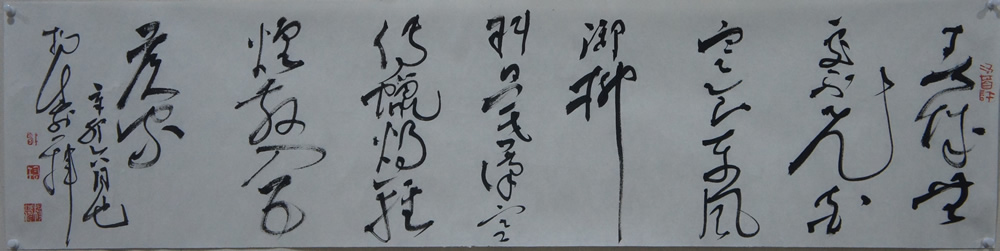 春城無
處不飛花
寒食東風
御柳
斜日暮漢宮
傳蠟燭輕
煙散入五
侯家
辛卯六月也